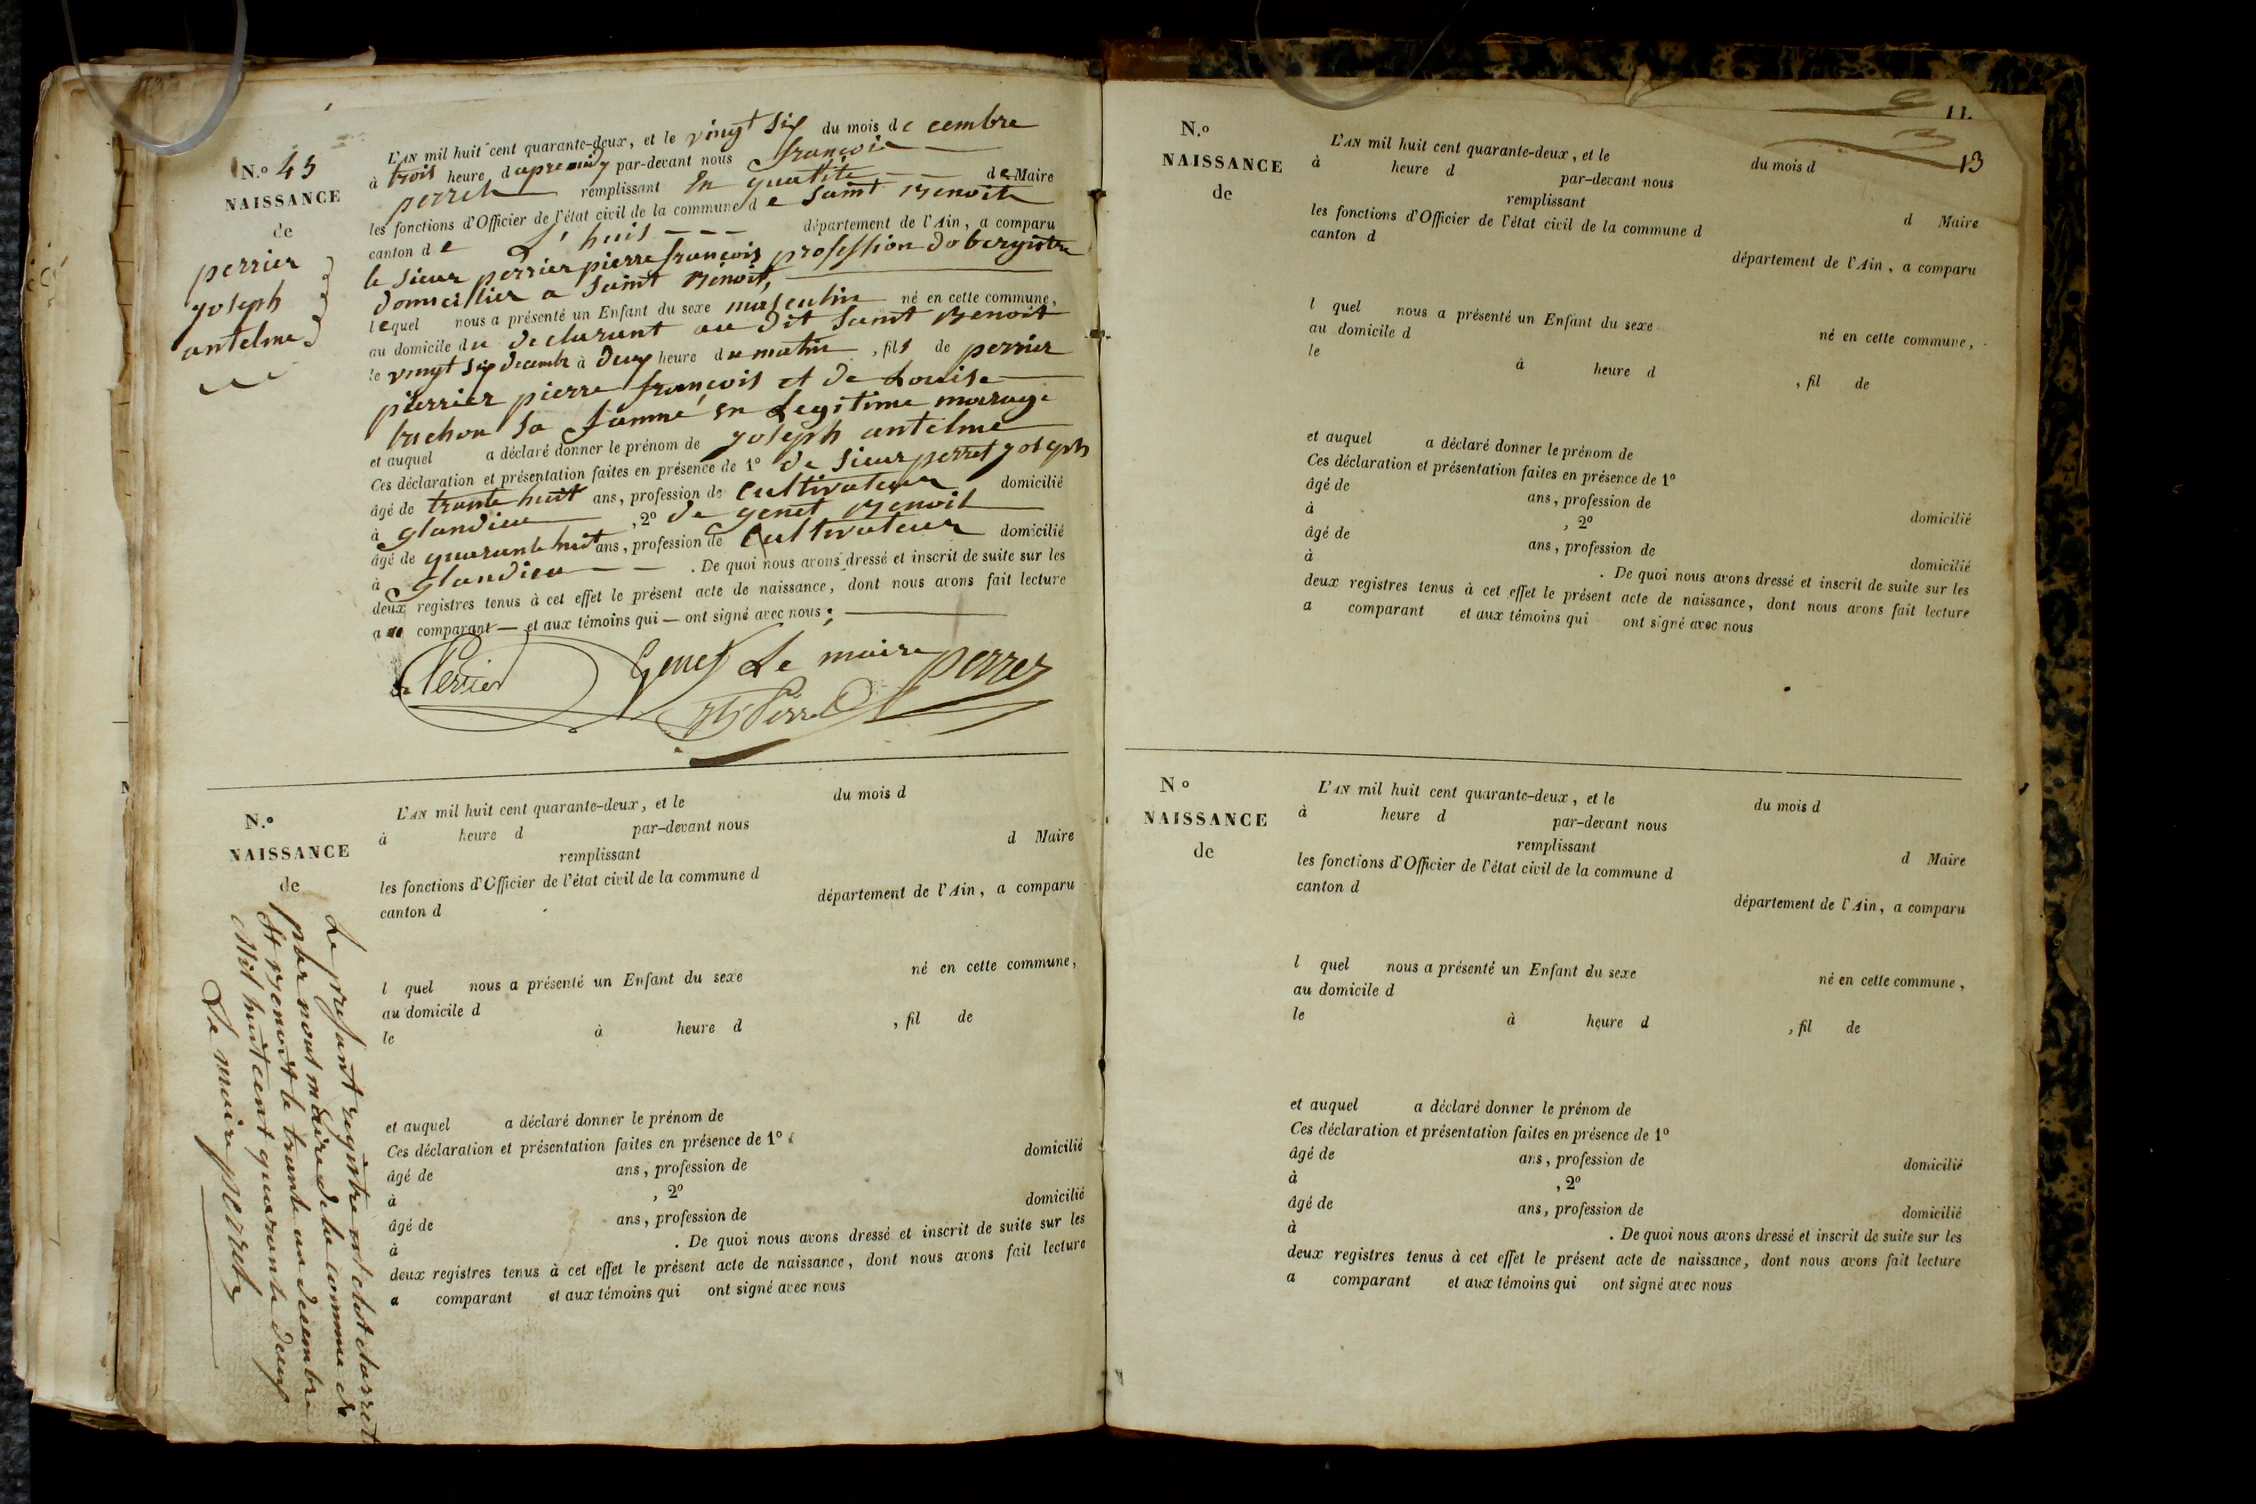 N.º 45
NAISSANCE
de
perrier
joseph
antelme
L'AN mil huit cent quarante-deux, et le vingt six du mois de cembre
à trois heure d apremidy par-devant nous françois
perret remplissant En qualité de Maire
les fonctions d'Officier de l'état civil de la commune d e saint Benoit
canton d e L'huis département de l'Ain, a comparu
le sieur perrier pierre françois profession dobergiste
domicillier a saint Benoit,
lequel nous a présenté un Enfant du sexe masculin né en cette commune,
au domicile du declarant au dit saint Benoit
le vingt six decembr à deux heure du matin, fils de perrier
pierrier pierre françois et de Louise
buchon sa famme en Legitime mariage
et auquel a déclaré donner le prénom de joseph antelme
Ces déclaration et présentation faites en présence de 1º de sieur perret joseph
âgé de trante huit ans, profession de cultivateur domicilié
à glandieu, 2º de genet Benoit
âgé de quarante huit ans, profession de Cultivateur domicilié
à glandieu. De quoi nous avons dressé et inscrit de suite sur les
deux registres tenus à cet effet le présent acte de naissance, dont nous avons fait lecture
a u comparant — et aux témoins qui — ont signé avec nous.
Perrier Genet Le maire perret
Perret
N.º
NAISSANCE
de
L'AN mil huit cent quarante-deux, et le du mois d
à heure d par-devant nous
remplissant d Maire
les fonctions d'Officier de l'état civil de la commune d
canton d département de l'Ain, a comparu
l quel nous a présenté un Enfant du sexe né en cette commune,
au domicile d
le à heure d , fil de
et auquel a déclaré donner le prénom de
Ces déclaration et présentation faites en présence de 1º
âgé de ans, profession de domicilié
à , 2º
âgé de ans, profession de domicilié
à . De quoi nous avons dressé et inscrit de suite sur les
deux registres tenus à cet effet le présent acte de naissance, dont nous avons fait lecture
a comparant et aux témoins qui ont signé avec nous
Le presant registre est clot et arreté
par nous maire de la commune de
St Benoit le trante un decembre
Mil huit cent quarante deux
Le maire perret
11
13
N.º
NAISSANCE
de
L'AN mil huit cent quarante-deux, et le du mois d
à heure d par-devant nous
remplissant d Maire
les fonctions d'Officier de l'état civil de la commune d
canton d département de l'Ain, a comparu
l quel nous a présenté un Enfant du sexe né en cette commune,
au domicile d
le à heure d , fil de
et auquel a déclaré donner le prénom de
Ces déclaration et présentation faites en présence de 1º
âgé de ans, profession de domicilié
à , 2º
âgé de ans, profession de domicilié
à . De quoi nous avons dressé et inscrit de suite sur les
deux registres tenus à cet effet le présent acte de naissance, dont nous avons fait lecture
a comparant et aux témoins qui ont signé avec nous
Nº
NAISSANCE
de
L'AN mil huit cent quarante-deux, et le du mois d
à heure d par-devant nous
remplissant d Maire
les fonctions d'Officier de l'état civil de la commune d
canton d département de l'Ain, a comparu
l quel nous a présenté un Enfant du sexe né en cette commune,
au domicile d
le à heure d , fil de
et auquel a déclaré donner le prénom de
Ces déclaration et présentation faites en présence de 1º
âgé de ans, profession de domicilié
à , 2º
âgé de ans, profession de domicilié
à . De quoi nous avons dressé et inscrit de suite sur les
deux registres tenus à cet effet le présent acte de naissance, dont nous avons fait lecture
a comparant et aux témoins qui ont signé avec nous